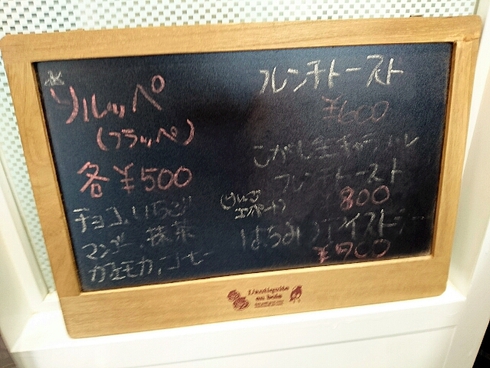 リルッペ
(フラッペ)
各¥500
チョコ、いちご
マンゴー、抹茶
カフェモカ、コーヒー
フレンチトースト
¥600
こがし生キャラメル
フレンチトースト
800
(りんご
はちみつ
¥700
L'antiquite
au bois